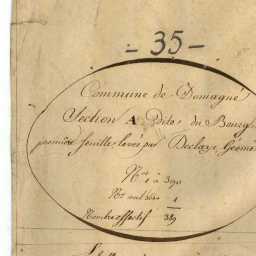 - 35 -
Commune de Domagné
Section A Dite du Bourg
première feuille, levée par Declaye, Géom
Nos 1 à 390
Nos
Nombre effectif 389